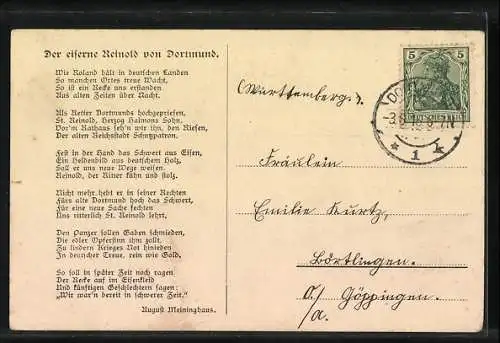 Der eiserne Reinold von Dortmund.
Wie Roland hält in deutschen Landen
So manchen Ortes treue Wacht,
So ist ein Recke uns erstanden
Aus alten Zeiten über Nacht.
Als Retter Dortmunds hochgepriesen,
St. Reinold, Herzog Haimons Sohn,
Vor'm Rathaus seh'n wir ihn, den Riesen,
Der alten Reichsstadt Schutzpatron.
Fest in der Hand das Schwert aus Eisen,
Ein Heldenbild aus deutschem Holz,
Soll er uns neue Wege weisen.
Reinold, der Ritter kühn und stolz.
Nicht mehr hebt er in seiner Rechten
Fürs alte Dortmund hoch das Schwert,
Für eine neue Sache fechten
Uns ritterlich St. Reinold lehrt,
Den Panzer sollen Gaben schmieden,
Die edler Opfersinn ihm zollt.
Zu lindern Krieges Not hinieden
In deutscher Treue, rein wie Gold,
So soll in später Zeit noch ragen
Der Recke auf im Eisenkleid
Und künftigen Geschlechtern sagen:
„Wir war'n bereit in schwerer Zeit."
August Meininghaus.
5 5
DO
1
(Württemberg).
Fräulein
Emilie Kurtz,
Börtlingen.
O./ Göppingen.
/a.